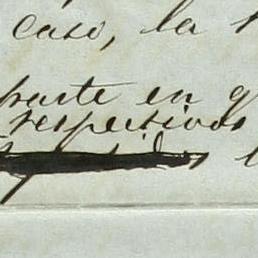 caso, la
parte en q
respectivos